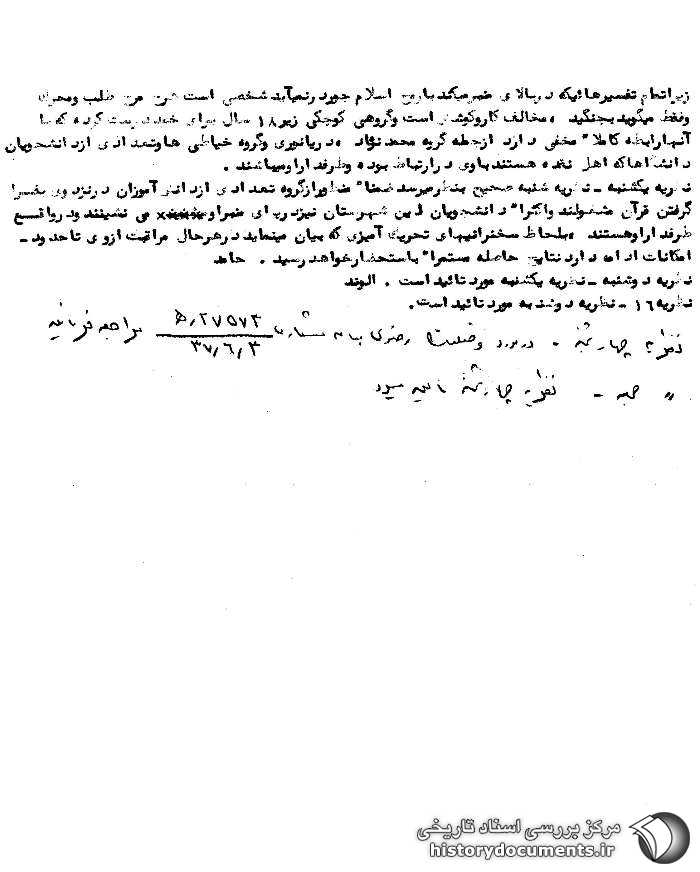 زیرا تمام تفسیرهائیکه در بالای منبر میکند با روح اسلام جور در نمیآید شخصی است هرج مرج طلب و محرک
وفقط میگوید بجنگید ، مخالف کار و کوشش است و گروهی کوچکی زیر ۱۸ سال برای خود درست کرده که با
آنها رابطه کاملا" مخفی دارد ازجمله گروه محمد نژاد ، دریانوری وگروه خیاطی ها وتعدادی از دانشجویان
دانشگاه که اهل نقده هستند با وی در ارتباط بوده وطرفدار او میباشند .
نظریه یکشنبه ـ نظریه شنبه صحیح بنظر میرسد ضمنا" همانطور از گروه تعدادی از دانش آموزان در نزد وی
گرفتن قرآن مشغولند واکثرا" دانشجویان این شهرستان نیز در پای منبر او می نشینند ودر واقع
طرفدار او هستند ، بلحاظ سخنرانیهای تحریک آمیزی که بیان مینماید در هر حال مراقبت از وی تا حدود ـ
امکانات ادامه دارد نتایج حاصله مستمرا" باستحضار خواهد رسید . حامد
نظریه دوشنبه ـ نظریه یکشنبه مورد تائید است . الوند
نظریه ۱۶ ـ نظریه دوشنبه مورد تائید است .
نظریه چهارشنبه ـ در مورد وضعیت رضوی به شماره ۲۷۵۷۳/ه‍ مراجعه فرمائید
۳۷/۶/۳
" جمعه ـ نظریه چهارشنبه تائید میشود
مرکز بررسی اسناد تاریخی
historydocuments.ir